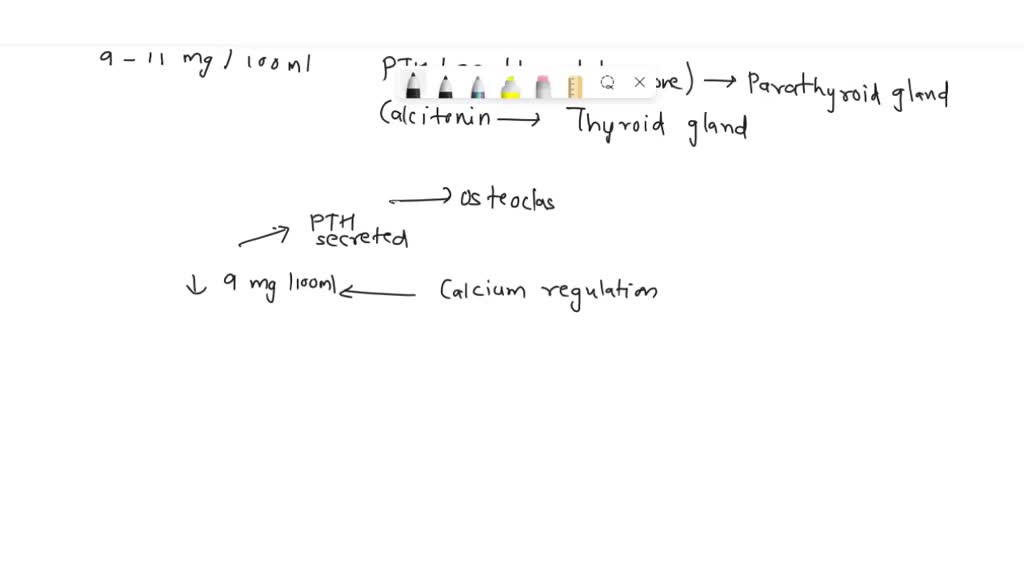 9 - 11 mg / 100ml
→ Parathyroid gland
Calcitonin → Thyroid gland
→ osteoclas
PTH
secreted
↓ 9 mg /100ml ← Calcium regulation